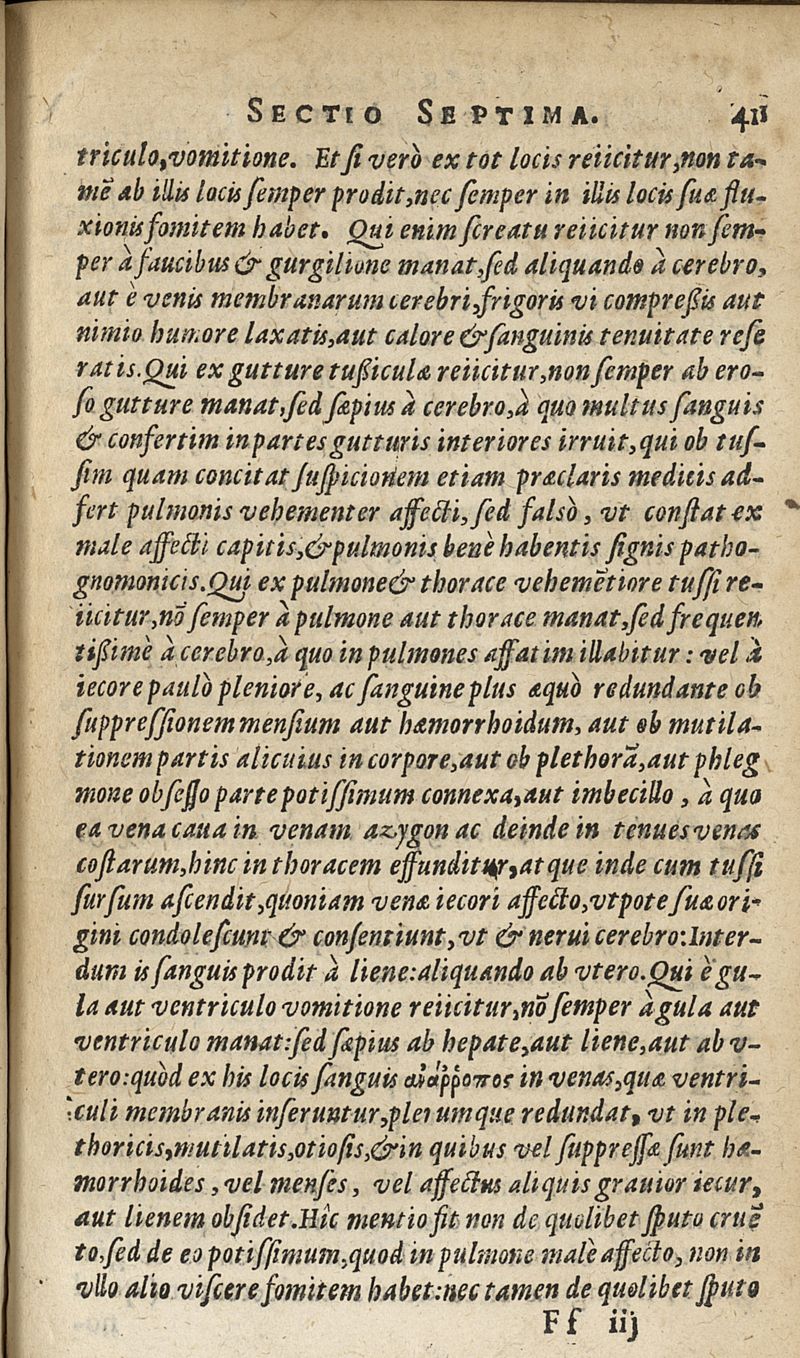 SECTIO SEPTIMA. 411
triculo,vomitione. Et ſi verò ex tot locis reiicitur,non ta-
mẽ ab illis locis ſemper prodit,nec ſemper in illis locis ſuæ flu-
xionis fomitem habet. Qui enim ſcreatu reiicitur non ſem-
per à faucibus & gurgilione manat,ſed aliquando à cerebro,
aut è venis membranarum cerebri,frigoris vi compreßis aut
nimio humore laxatis,aut calore & ſanguinis tenuitate reſe
ratis.Qui ex gutture tußiculæ reiicitur,non ſemper ab ero-
ſo gutture manat,ſed ſæpius à cerebro,à quo multus ſanguis
& confertim in partes gutturis interiores irruit,qui ob tuſ-
ſim quam concitat ſuſpicionem etiam præclaris medicis ad-
fert pulmonis vehementer affecti, ſed falsò, vt conſtat ex
male affecti capitis,& pulmonis benè habentis ſignis patho-
gnomonicis.Qui ex pulmone & thorace vehemẽtiore tuſſi re-
iicitur,nõ ſemper à pulmone aut thorace manat,ſed frequen
tißimè à cerebro,à quo in pulmones affatim illabitur : vel à
iecore paulò pleniore, ac ſanguine plus æquò redundante ob
ſuppreſſionem menſium aut hæmorrhoidum, aut ob mutila-
tionem partis alicuius in corpore,aut ob plethorã,aut phleg
mone obſeſſo parte potiſſimum connexa,aut imbecillo, à quo
ea vena caua in venam azygon ac deinde in tenues venas
coſtarum,hinc in thoracem effunditur,atque inde cum tuſſi
ſurſum aſcendit,quoniam venæ iecori affecto,vtpote ſuæ ori-
gini condoleſcunt & conſentiunt,vt & nerui cerebro:Inter-
dum is ſanguis prodit à liene:aliquando ab vtero.Qui è gu-
la aut ventriculo vomitione reiicitur,nõ ſemper à gula aut
ventriculo manat:ſed ſæpius ab hepate,aut liene,aut ab v-
tero:quòd ex his locis ſanguis ἀνάῤῥοπος in venas,quæ ventri-
culi membranis inſeruntur,plerumque redundat, vt in ple-
thoricis,mutilatis,otioſis,& in quibus vel ſuppreſſæ ſunt hæ-
morrhoides, vel menſes, vel affectus aliquis grauior iecur,
aut lienem obſidet.Hîc mentio fit non de quolibet ſputo cruẽ
to,ſed de eo potiſſimum,quod in pulmone malè affecto, non in
vllo alio viſcere fomitem habet:nec tamen de quolibet ſputo
Ff iij